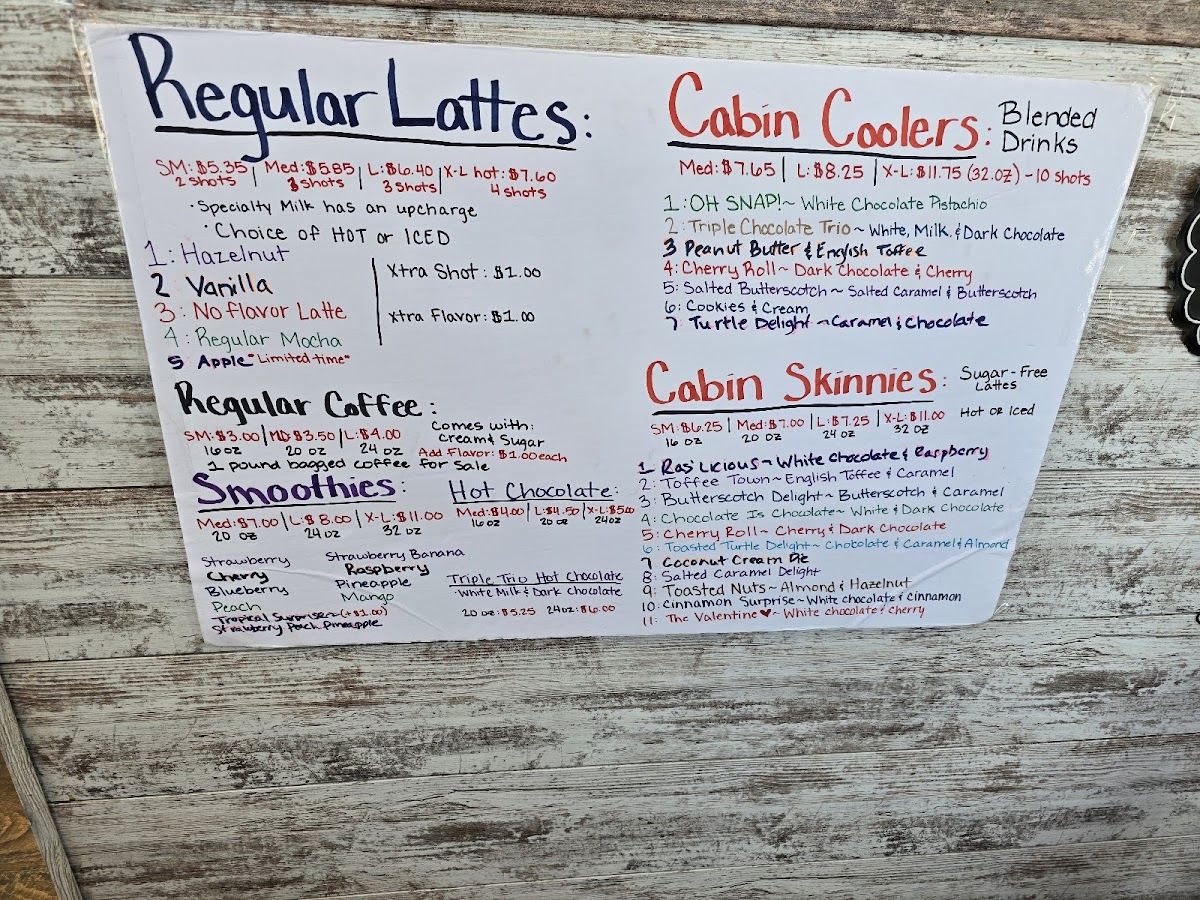 Regular Lattes:
SM: $5.35 | Med: $5.85 | L: $6.40 | X-L hot: $7.60
2 shots 3 shots 3 shots 4 shots
· Specialty Milk has an upcharge
· Choice of HOT or ICED
1: Hazelnut
2 Vanilla
3: No flavor Latte
4: Regular Mocha
5 Apple "Limited time"
Xtra Shot: $1.00
Xtra Flavor: $1.00
Regular Coffee:
SM: $3.00 | MD: $3.50 | L: $4.00
16 oz 20 oz 24 oz
Comes with:
cream & Sugar
Add Flavor: $1.00 each
1 pound bagged coffee for sale
Smoothies:
Med: $7.00 | L: $8.00 | X-L: $11.00
20 oz 24 oz 32 oz
Strawberry
Cherry
Blueberry
Peach
Strawberry Banana
Raspberry
Pineapple
Mango
Tropical Surprise~ (+$1.00)
Strawberry Peach Pineapple
Hot Chocolate:
Med: $4.00 | L: $4.50 | X-L: $5.00
16 oz 20 oz 24 oz
Triple Trio Hot Chocolate
White Milk & Dark chocolate
20 oz: $5.25 24 oz: $6.00
Cabin Coolers: Blended
Drinks
Med: $7.65 | L: $8.25 | X-L: $11.75 (32.oz) - 10 shots
1: OH SNAP!~ White Chocolate Pistachio
2: Triple Chocolate Trio ~ White, Milk, & Dark Chocolate
3 Peanut Butter & English Toffee
4: Cherry Roll~ Dark Chocolate & Cherry
5: Salted Butterscotch ~ Salted Caramel & Butterscotch
6: Cookies & Cream
7 Turtle Delight ~ Caramel & Chocolate
Cabin Skinnies: Sugar-Free
Lattes
Hot or Iced
SM: $6.25 | Med: $7.00 | L: $7.25 | X-L: $11.00
16 oz 20 oz 24 oz 32 oz
1 Ras'Licious ~ White Chocolate & Raspberry
2: Toffee Town ~ English Toffee & Caramel
3: Butterscotch Delight ~ Butterscotch & Caramel
4: Chocolate Is Chocolate ~ White & Dark Chocolate
5: Cherry Roll ~ Cherry & Dark Chocolate
6: Toasted Turtle Delight ~ Chocolate & Caramel & Almond
7 Coconut Cream Pie
8: Salted Caramel Delight
9: Toasted Nuts ~ Almond & Hazelnut
10: Cinnamon Surprise ~ White chocolate & Cinnamon
11: The Valentine ♥ ~ White chocolate & cherry